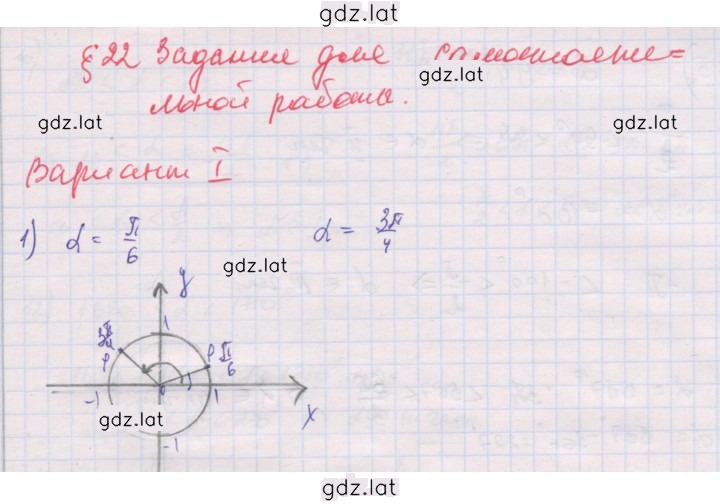 gdz.lat
§22 Задания для самостоятель=
gdz.lat
ьной работы.
gdz.lat gdz.lat
Вариант I
1) α = π/6 α = 3π/4
gdz.lat
y
1
3π/4 P P π/6
-1 0 1 x
gdz.lat
-1
gdz.lat